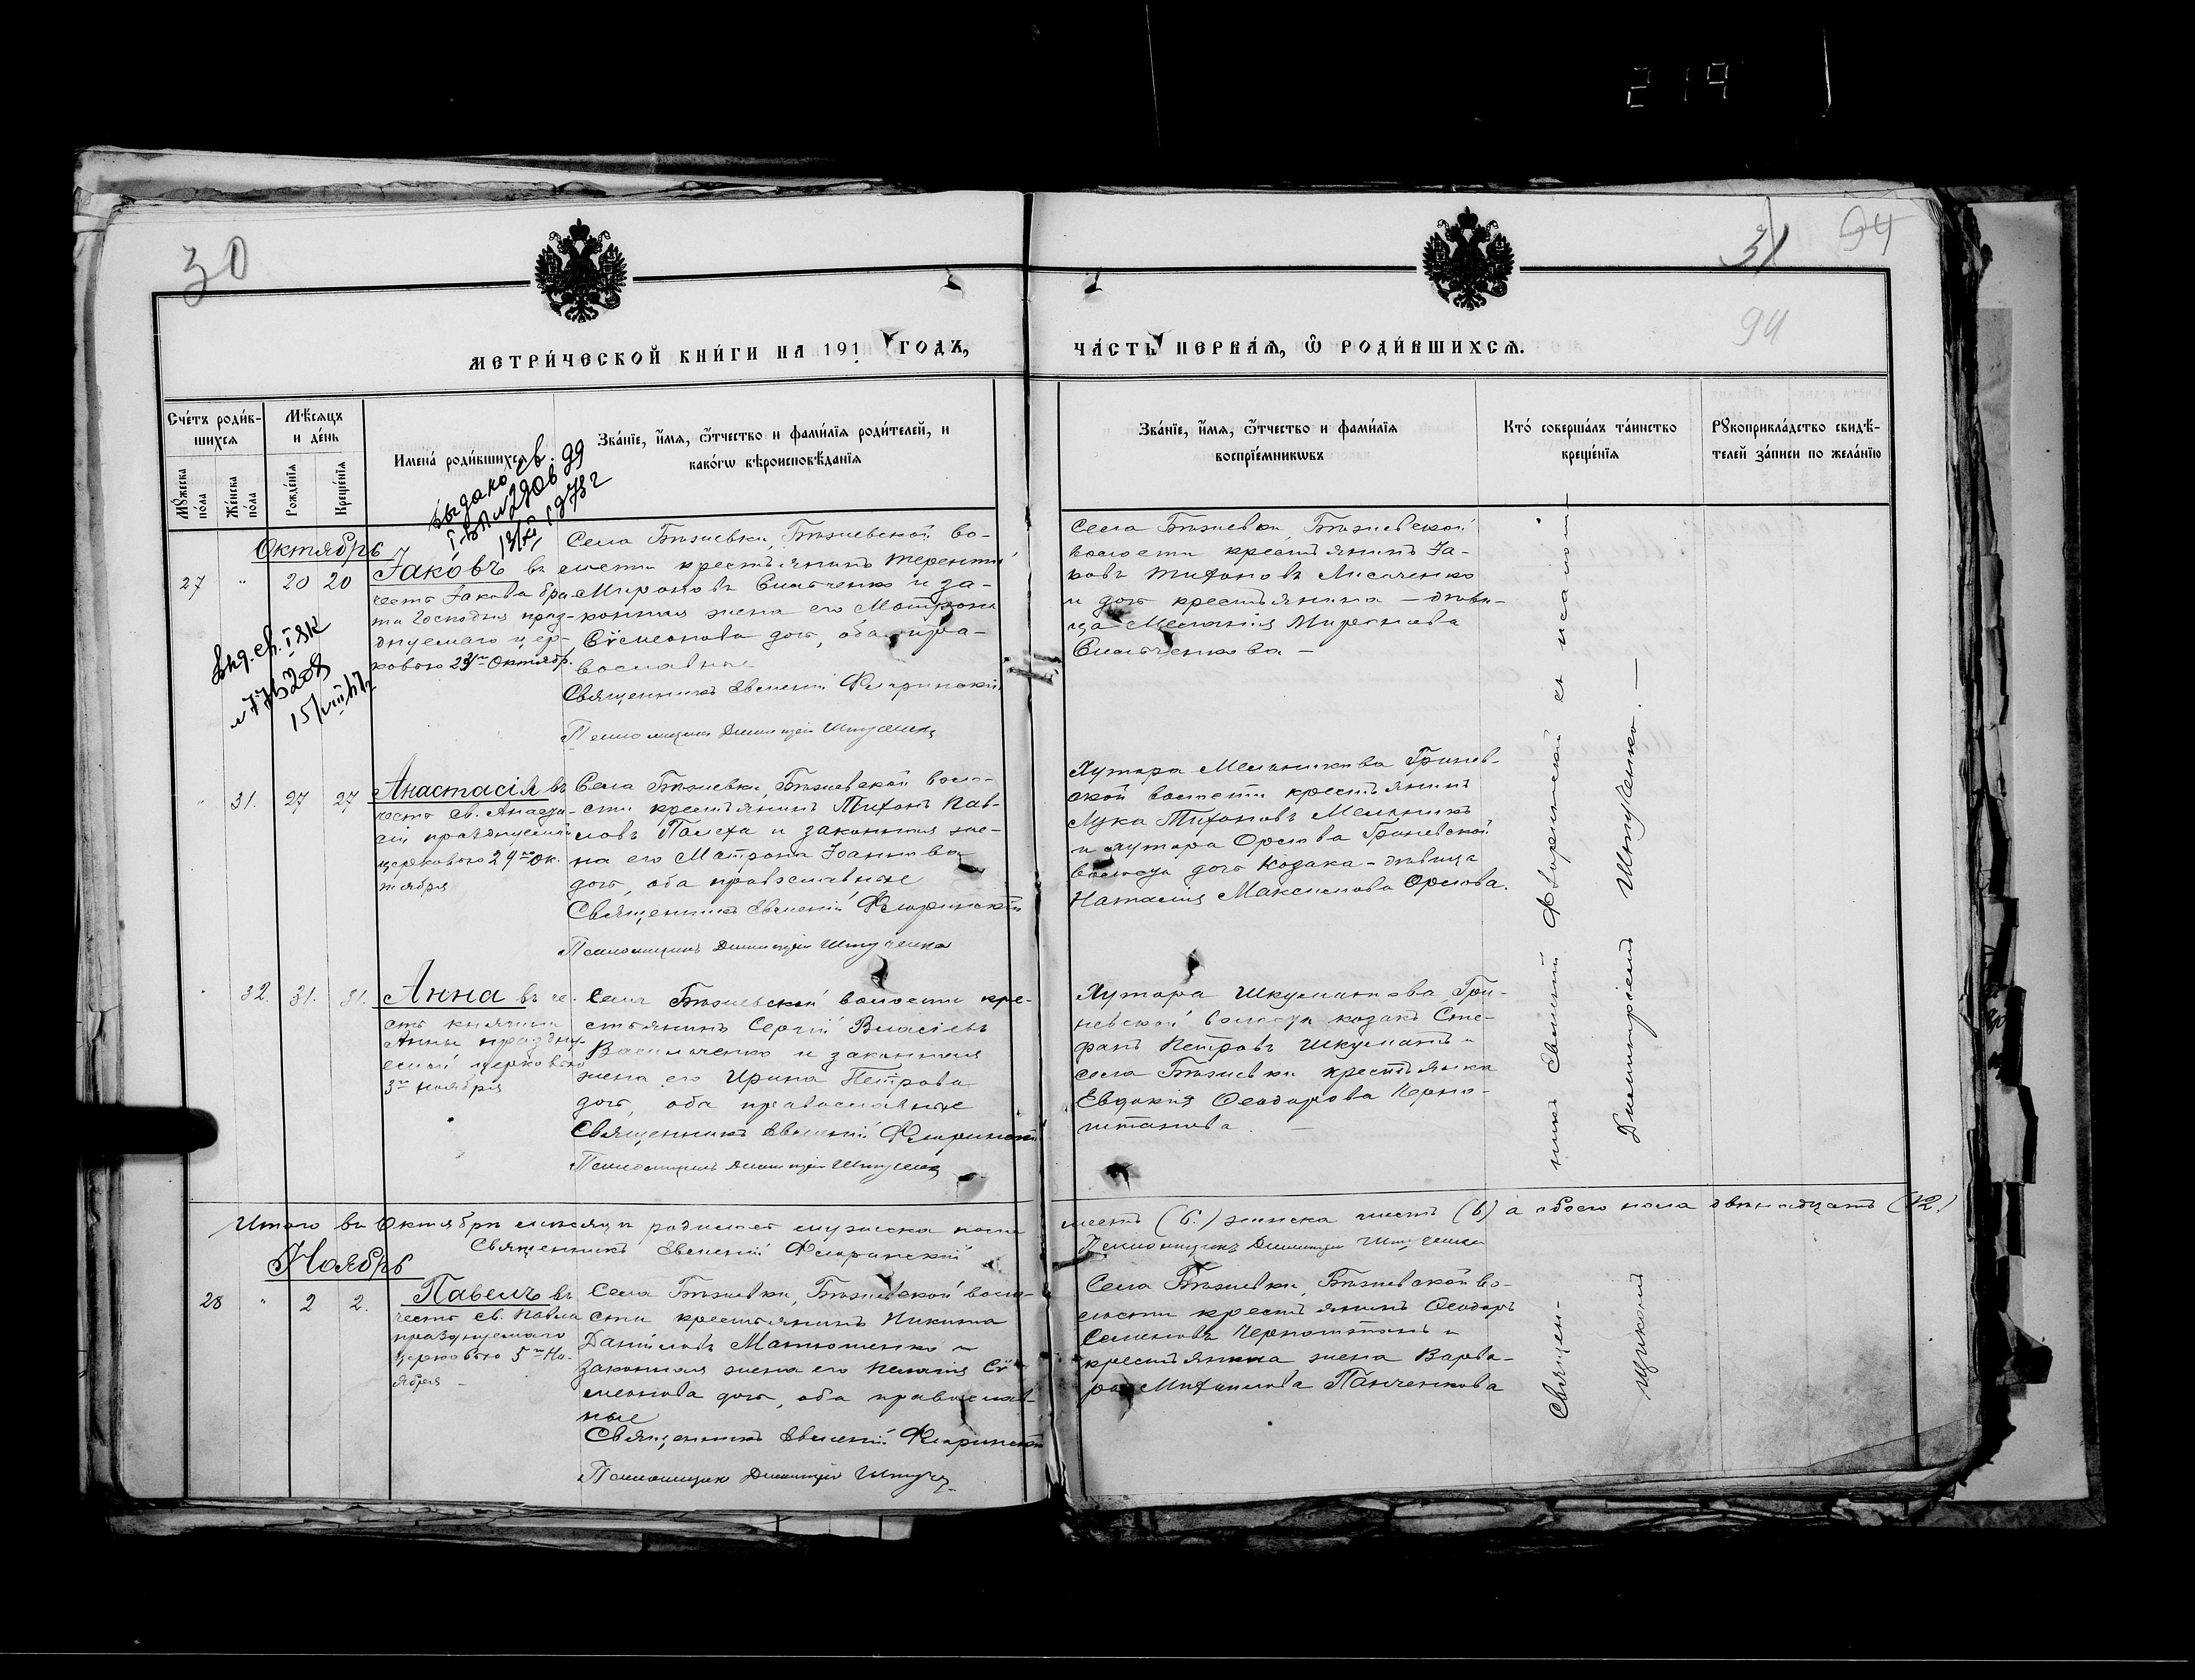 219
30
31 94
94
МЕТРИ́ЧЕСКОЙ КНИ́ГИ НА 191 ГОДЪ,
ЧА́СТЬ ПЕ́РВАѦ, Ѿ РОДИ́ВШИХСѦ.
Сче́тъ роди́в-
шихсѧ
Мѣ́сѧцъ
и де́нь
Имена́ роди́вшихсѧ
Зва́нїе, и́мѧ, ѻ́тчество и фами́лїѧ роди́телей, и
како́гѡ вѣроисповѣ́данїѧ
Мꙋ́жеска по́ла
Же́нска по́ла
Рожде́нїѧ
Креще́нїѧ
Зва́нїе, и́мѧ, ѻ́тчество и фами́лїѧ
воспрїе́мникѡвъ
Кто́ соверша́лъ та́инство
креще́нїѧ
Рꙋкоприкла́дство свидѣ́-
телей за́писи по жела́нїю
Октябрь
27 " 20 20
Іаковъ въ
честь Іакова бра-
та Господня праз-
днуемаго цер-
ковью 23го Октябр.
Села Бѣзневки, Бѣзневской во-
лости крестьянинъ Терентій
Мироновъ Сильченко и за-
конная жена его Матрона
Сѵмеонова дочь, оба пра-
вославные
Священникъ Евгеній Флоринскій
Псаломщикъ Димитрій Штученко
Села Бѣзневки, Бѣзневской
волости крестьянинъ Іа-
ковъ Тихоновъ Лисаченко
и дочь крестьянина — дѣви-
ца Меланія Миронова
Сильченкова —
" 31. 27 27
Анастасія въ
честь св. Анаста-
сіи празднуемой
церковью 29го Ок-
тября
Села Бѣзневки, Бѣзневской воло-
сти крестьянинъ Тихонъ Пав-
ловъ Палеха и законная же-
на его Матрона Іоаннова
дочь, оба православные
Священникъ Евгеній Флоринскій
Псаломщикъ Димитрій Штученко
Хутора Мельникова Гринев-
ской волости крестьянинъ
Лука Тихоновъ Мельникъ
и хутора Орлова Гриневской
волости дочь козака - дѣвица
Наталія Максимова Орлова.
32. 31. 31.
Анна въ че-
сть княгини
Анны праздну-
емой церковью
3го ноября
Села Бѣзневской волости кре-
стьянинъ Сергій Власіевъ
Васильченко и законная
жена его Ирина Петрова
дочь, оба православные
Священникъ Евгеній Флоринскій
Псаломщикъ Димитрій Штученко
Хутора Шкуматова, Гри-
невской волости козакъ Сте-
фанъ Петровъ Шкуматъ и
села Бѣзневки крестьянка
Евдокія Ѳеодорова Черно-
штанова. —
Итого въ Октябрѣ мѣсяцѣ родилось мужска пола
шесть (6.) женска шесть (6) а обоего пола двѣнадцать (12.)
Священникъ Евгеній Флоринскій
Псаломщикъ Димитрій Штученко
Ноябрь
28 " 2 2.
Павелъ въ
честь св. Павла
празднуемаго
церковью 5го Но-
ября —
Села Бѣзневки, Бѣзневской воло-
сти крестьянинъ Никита
Даніиловъ Матюшенко и
законная жена его Пелагія Сѵ-
меонова дочь, оба православ-
ные
Священникъ Евгеній Флоринскій
Псаломщикъ Димитрій Штуч.
Села Бѣзневки, Бѣзневской во-
лости крестьянинъ Ѳеодоръ
Семеновъ Черноштанъ и
крестьянина жена Варва-
ра Михаилова Панченкова
Священ-
никъ Евгеній Флоринскій съ псалом-
щикомъ
Димитріемъ Штученко. —